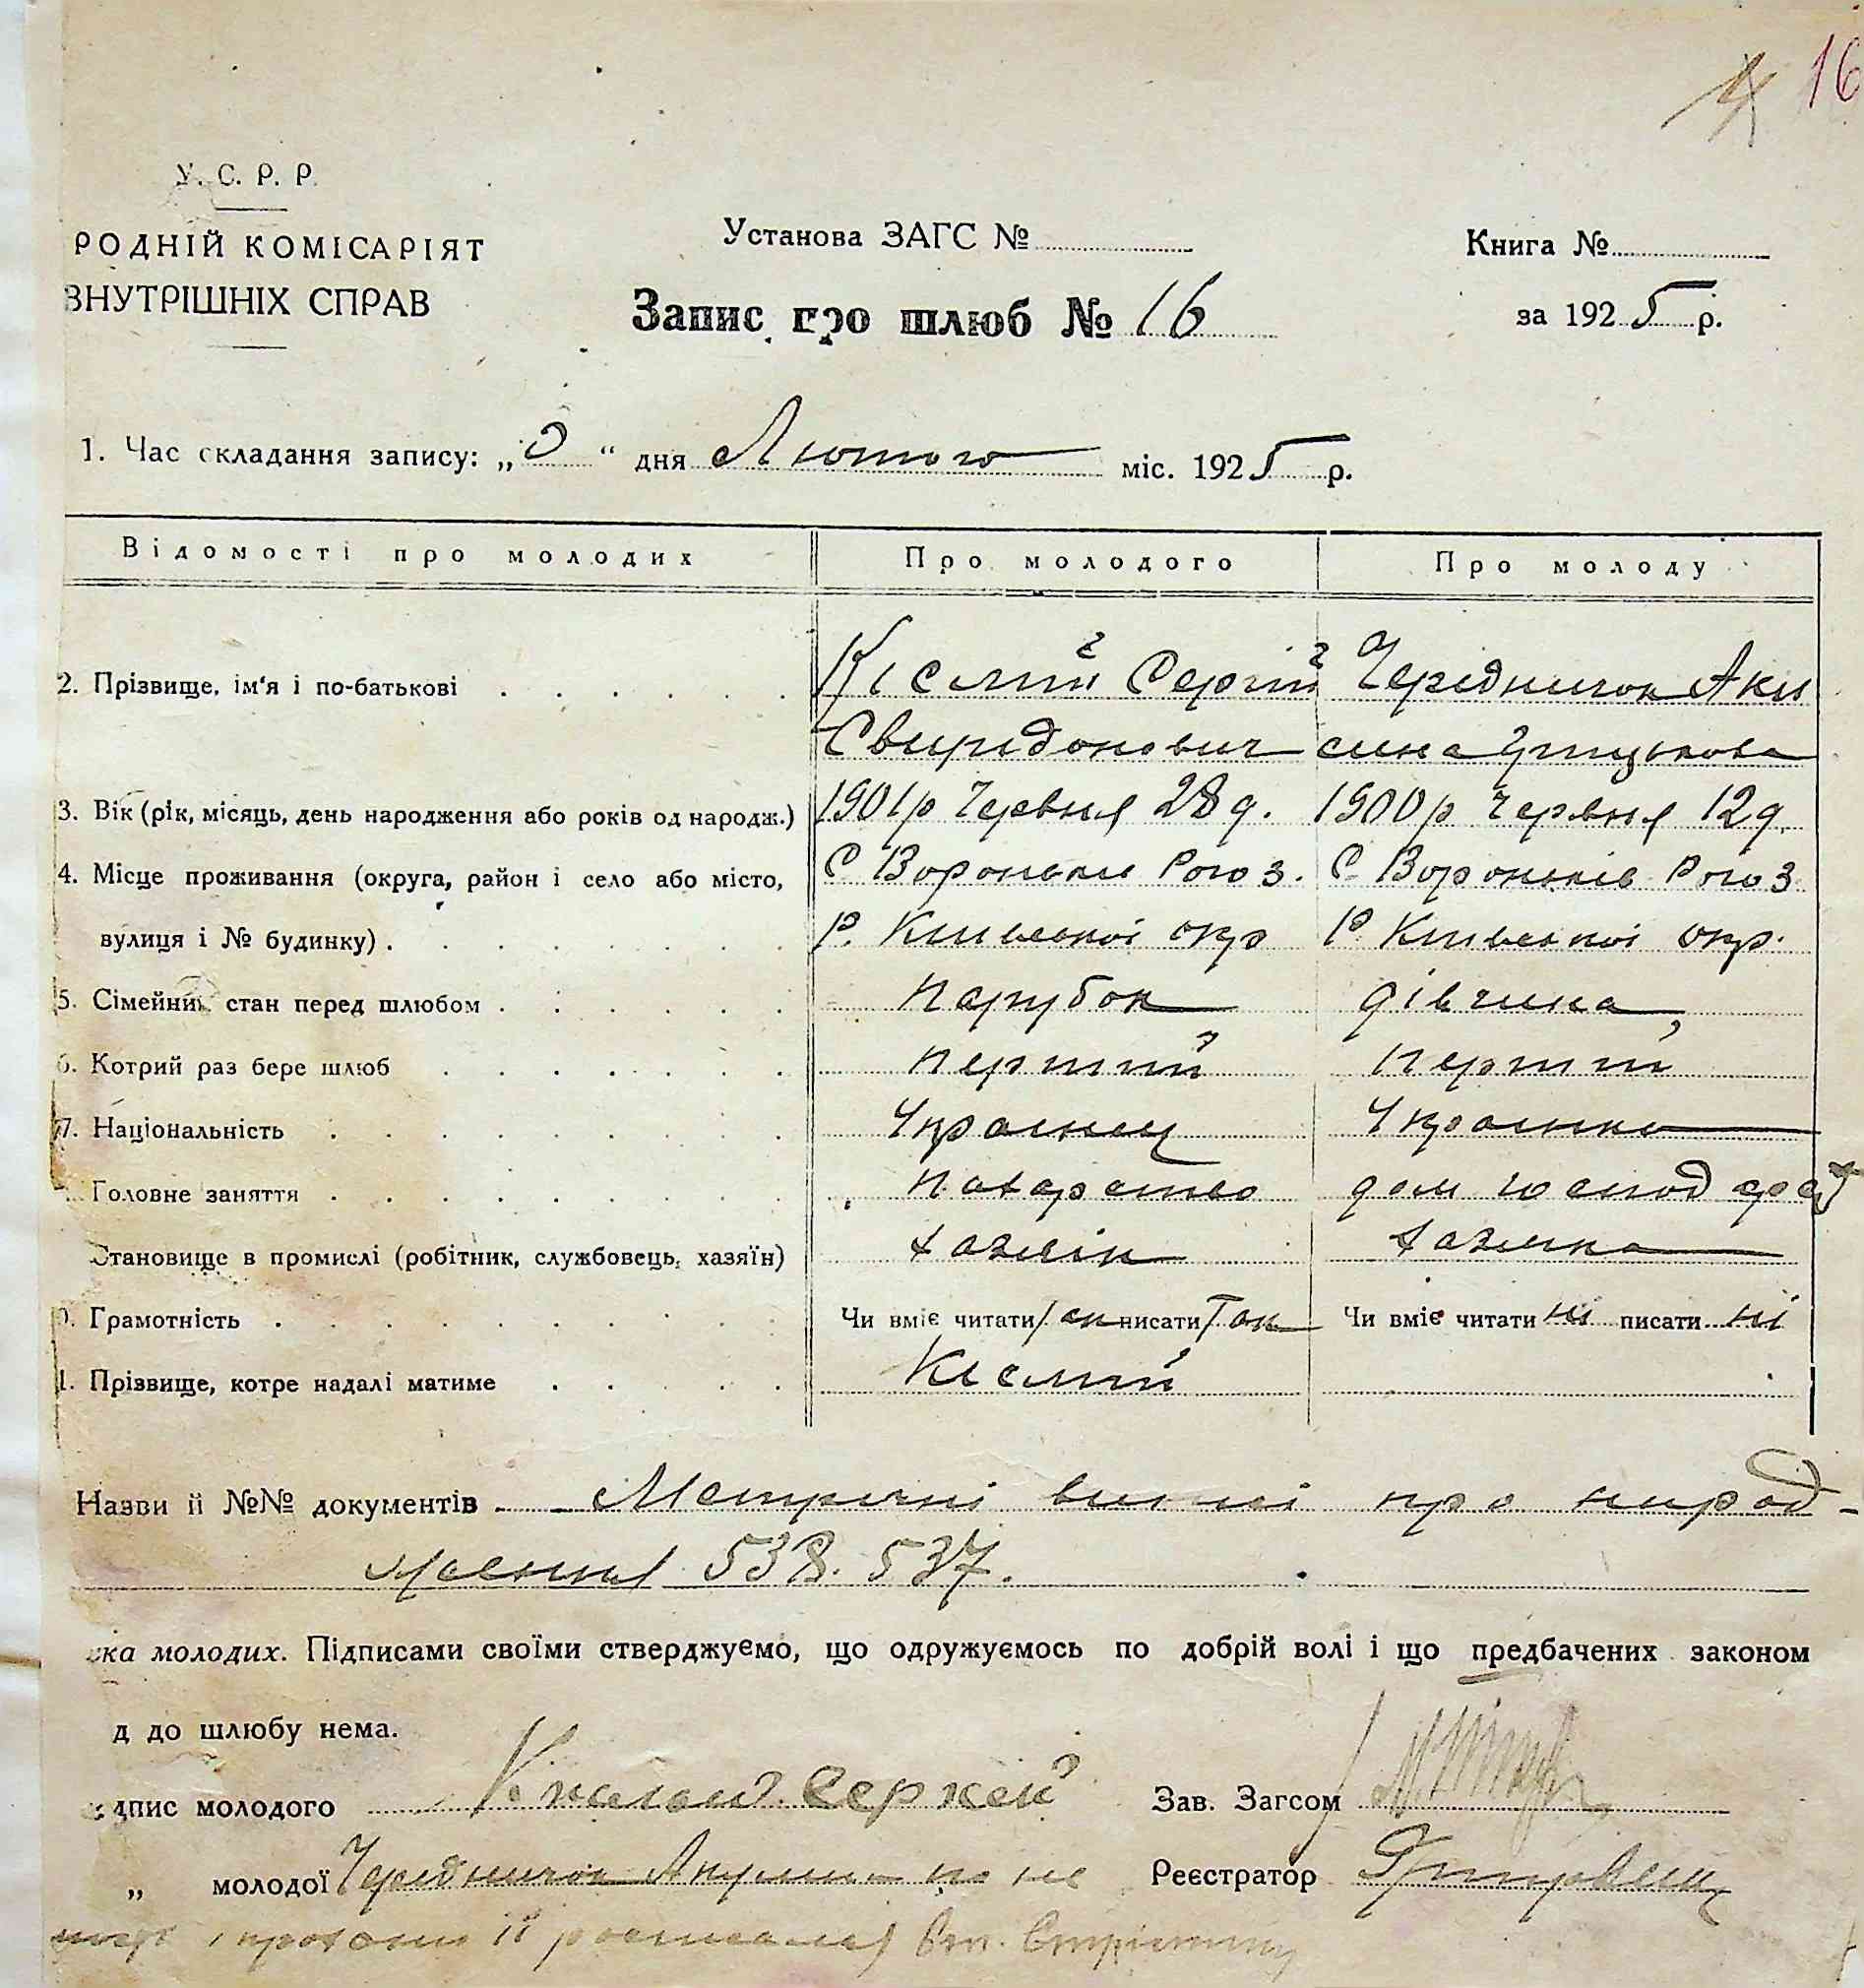 16
У. С. Р. Р.
РОДНІЙ КОМІСАРІЯТ
ВНУТРІШНІХ СПРАВ
Установа ЗАГС №
Книга №
Запис про шлюб № 16
за 1925 р.
1. Час складання запису: „ “ дня Лютого міс. 1925 р.
Відомості про молодих Про молодого Про молоду
2. Прізвище, ім'я і по-батькові Кіслий Сергій Черіднічок Аки
Свиридонович сина Грицькова
3. Вік (рік, місяць, день народження або років од народж.) 1901 р Червня 28 д. 1900 р Червня 12 д.
4. Місце проживання (округа, район і село або місто, С Вороньків Рогоз. С Вороньків Рогоз
вулиця і № будинку) Р. Київської окр Р Київської окр.
5. Сімейний стан перед шлюбом парубок дівчина
6. Котрий раз бере шлюб перший перший
7. Національність Українец Українка
Головне заняття пахарство дом господ
Становище в промислі (робітник, службовець, хазяїн) хазяїн хазяйка
Грамотність Чи вміє читати Так писати Так Чи вміє читати ні писати ні
1. Прізвище, котре надалі матиме Кіслий
Назви й №№ документів Метричні виписі про народ-
ження 538. 537.
ка молодих. Підписами своїми стверджуємо, що одружуємось по добрій волі і що предбачених законом
д до шлюбу нема.
дпис молодого Сергей Зав. Загсом
„ молодої Черіднічок Акулина но не Реєстратор
і прохання її росписался